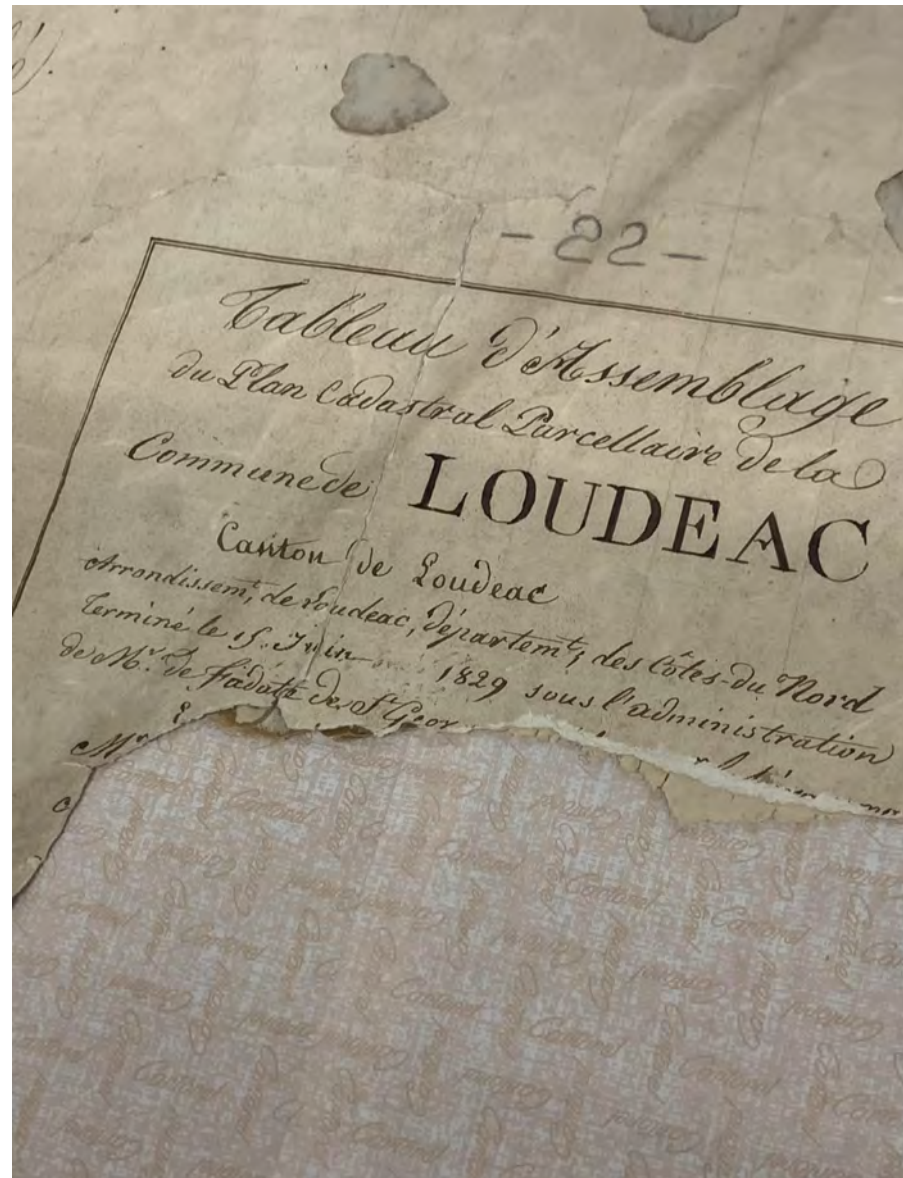 - 22 -
Tableau d'Assemblage
du Plan Cadastral Parcellaire de la
Commune de LOUDEAC
Canton de Loudeac
Arrondissemt, de Loudeac, départemt, des Côtes-du Nord
Terminé le 15 Juin 1829 sous l'administration
de Mr. de fadate de St Geor
Mr